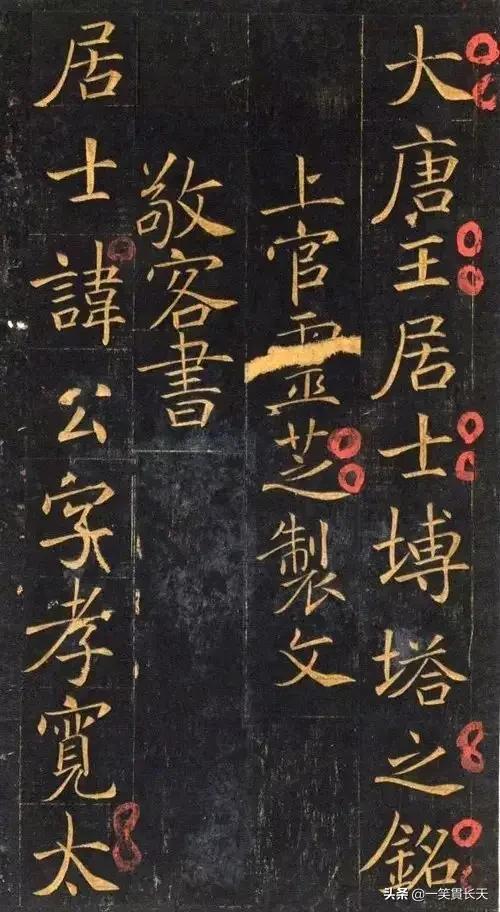 大唐王居士塼塔之銘
上官靈芝製文
敬客書
居士諱公字孝寬太
头条 @一笑貫长天